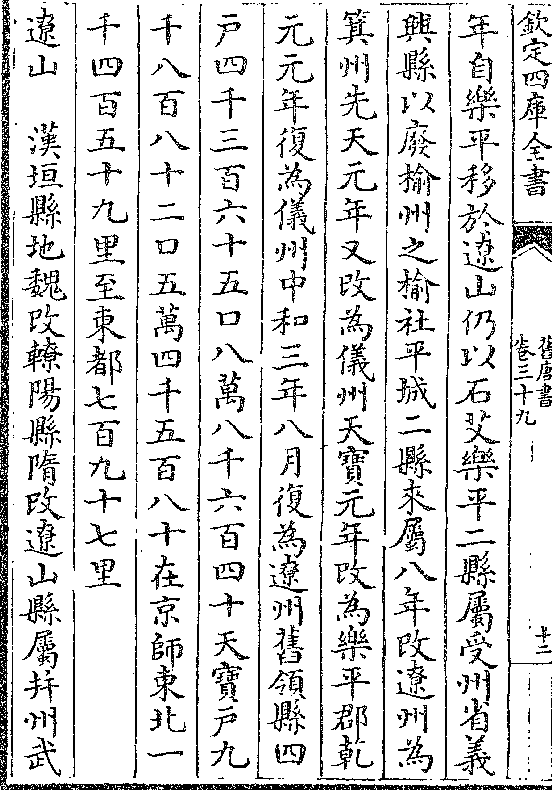 欽定四庫全書
舊唐書
卷三十九
十二
年自樂平移於遼山仍以石艾樂平二縣屬受州省義
興縣以廢榆州之榆社平城二縣來屬八年改遼州為
箕州先天元年又改為儀州天寶元年改為樂平郡乾
元元年復為儀州中和三年八月復為遼州舊領縣四
戸四千三百六十五口八萬八千六百四十天寶戸九
千八百八十二口五萬四千五百八十在京師東北一
千四百五十九里至東都七百九十七里
遼山　漢垣縣地魏改轑陽縣隋改遼山縣屬并州武